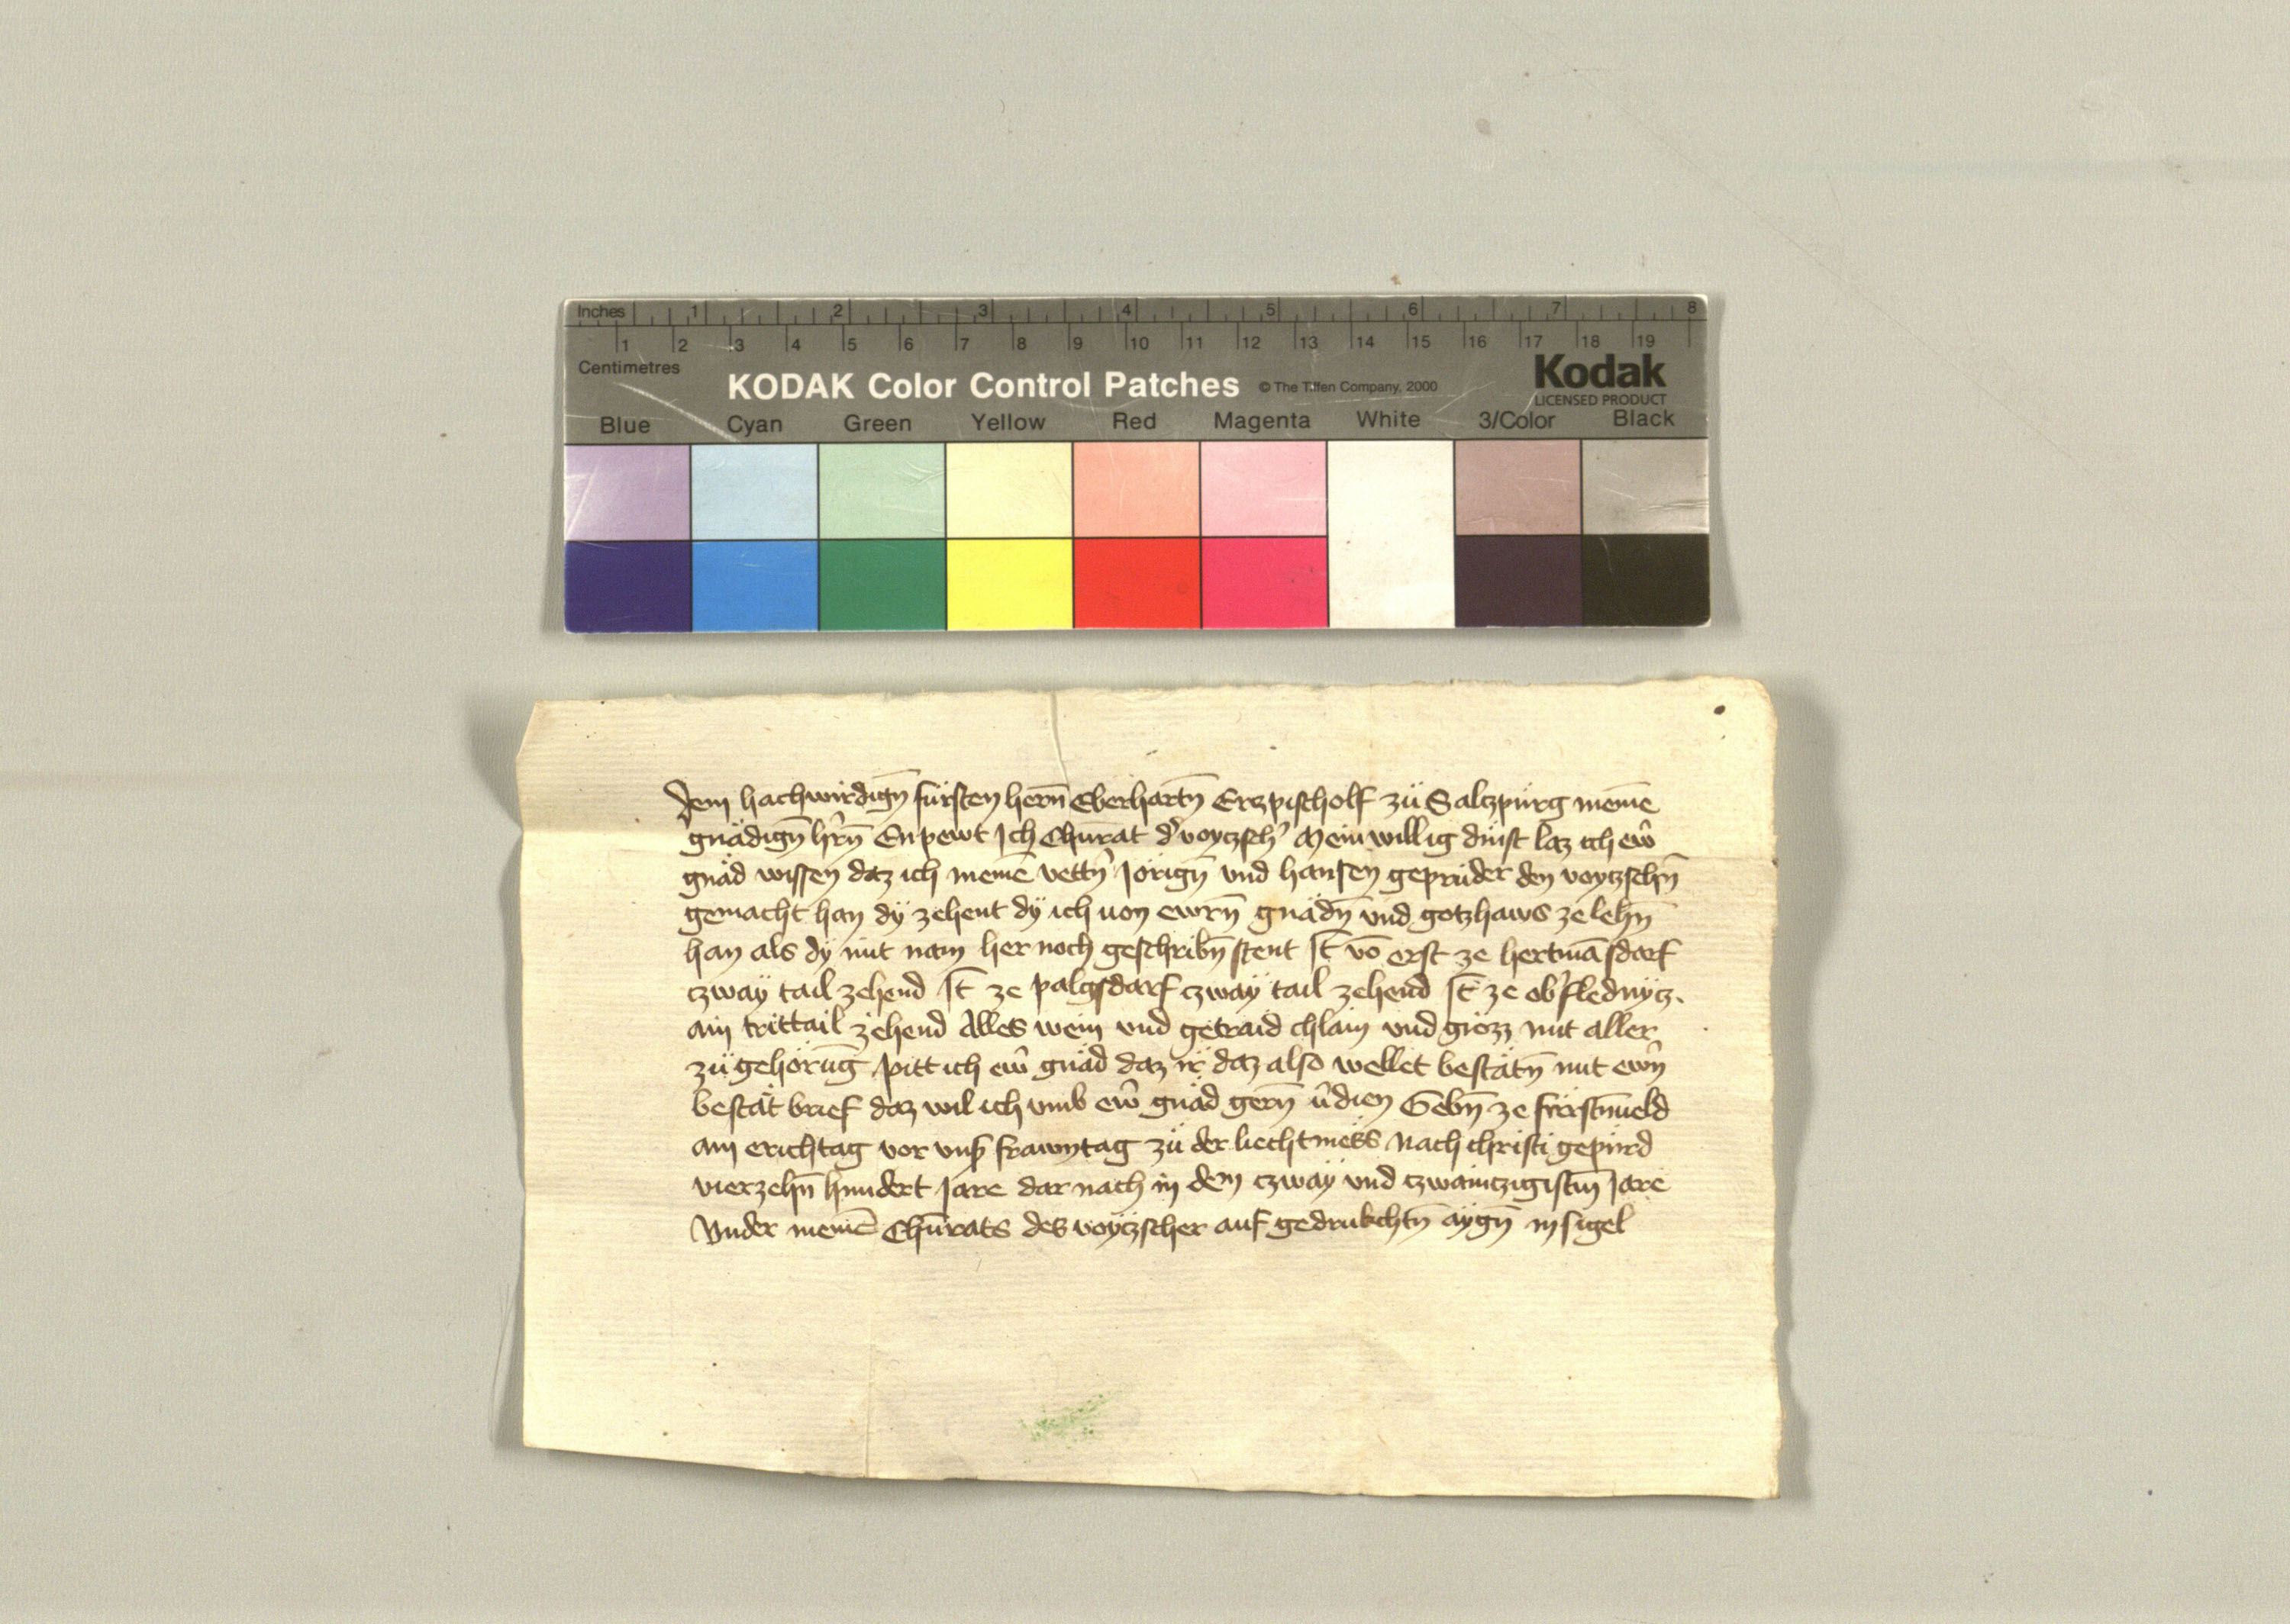 Inches 1 2 3 4 5 6 7 8
1 2 3 4 5 6 7 8 9 10 11 12 13 14 15 16 17 18 19
Centimetres
KODAK Color Control Patches © The Tiffen Company, 2000 Kodak
LICENSED PRODUCT
Blue Cyan Green Yellow Red Magenta White 3/Color Black
Dem hachwirdign̄ fürsten hern̄ Eberhartn̄ Erczpischolf zü Salczpürg meinē
gnädign̄ hr̄n̄ Enpewt Ich Chūrat d' voytzsch' Mein willig dinst laz ich ew̄
gnäd wissen daz ich meinē vettn̄ Jörign̄ vnd hansen geprüder den voytzschn̄
gemacht han dÿ zehent dÿ ich uon ewrn̄ gnädn̄ vnd gotzhaws ze lehn̄
han als dÿ mit nam her noch geschribn̄ stent It̄ vō erst ze hertmāsdarf
czwaÿ tail zehend It̄ ze palgsdarf czwaÿ tail zehend It̄ ze ob'flednÿcz.
ain trittail zehend Alles wein vnd getraid chlain vnd grözz mit aller
zü gehörūg pitt ich ew̄ gnäd daz ir daz also wellet bestätn̄ mit ewrn̄
bestät brief daz wil ich vmb ew̄ gnäd gern̄ v̄dien Gebn̄ ze fürstn̄ueld
am erichtag vor vns̄ frawntag zü der liechtmess Nach christi gepürd
vierzehn̄ hundert Jare dar nach in dem czwaÿ vnd czwainczigistn̄ Jare
Vnder meinē Chūrats des voÿtzscher auf gedrukchtn̄ aÿgn̄ insigel